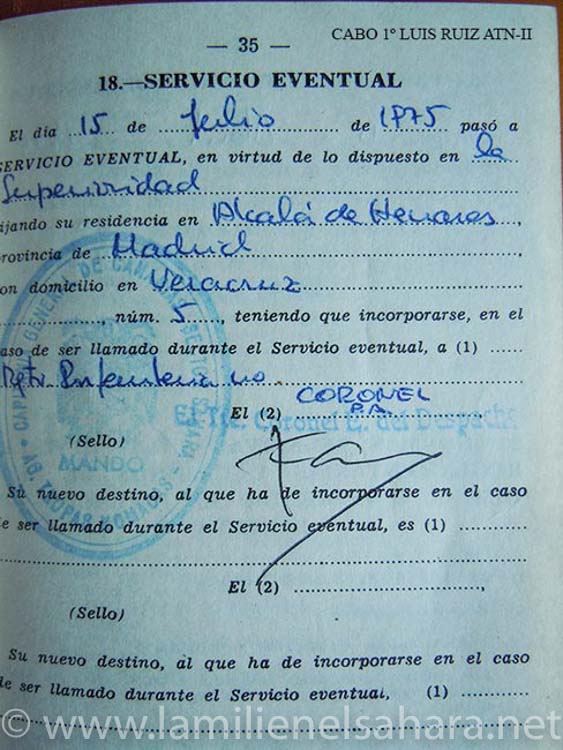 CABO 1º LUIS RUIZ ATN-II
— 35 —
18.—SERVICIO EVENTUAL
El día 15 de Julio de 1975 pasó a
SERVICIO EVENTUAL, en virtud de lo dispuesto en la
Superioridad
ijando su residencia en Alcalá de Henares,
provincia de Madrid,
on domicilio en Veracruz
, núm. 5, teniendo que incorporarse, en el
caso de ser llamado durante el Servicio eventual, a (1)
El (2) CORONEL
P.A.
El Tte. Coronel E. del Despacho
(Sello)
MANDO
Su nuevo destino, al que ha de incorporarse en el caso
de ser llamado durante el Servicio eventual, es (1)
El (2)
(Sello)
Su nuevo destino, al que ha de incorporarse en el caso
de ser llamado durante el Servicio eventual, (1)
© www.lamilienelsahara.net